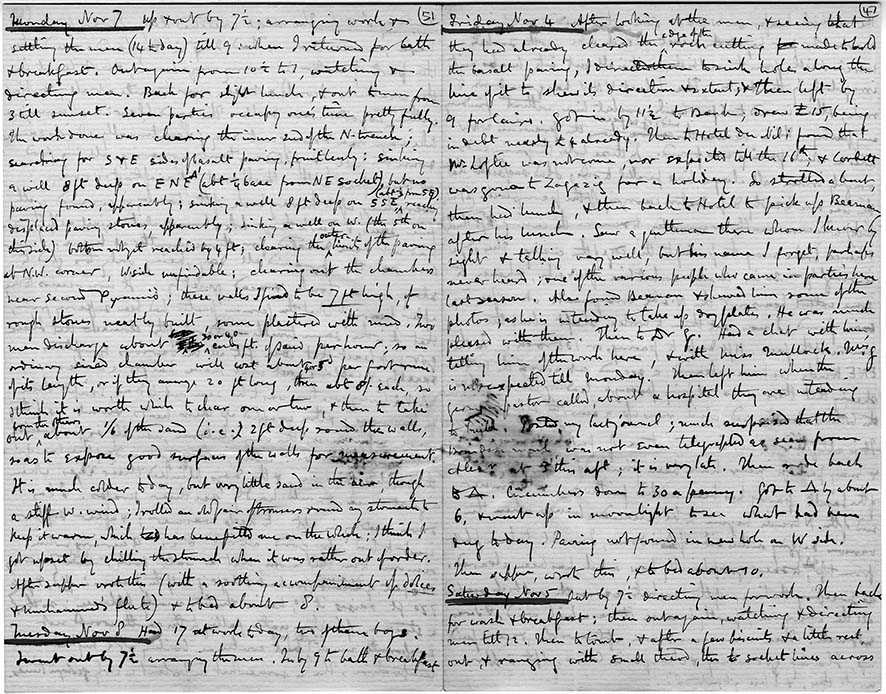 (51
Monday Nov 7 up & out by 7½; arranging work &
settling the men (14 to day) till 9: when I returned for bath
& breakfast. Out again from 10½ to 1, watching &
directing men. Back for slight lunch, & out to men from
3 till sunset. Seven parties occupy one's time pretty fully.
The work done was clearing the inner end of the N-trench;
searching for S & E sides of basalt paving, fruitlessly: sinking
a well 8 ft deep on ENE (abt ¼ base from NE socket) but no
paving found, apparently; sinking a well 8 ft deep on SSE, (abt from SE) reaching
displaced paving stones, apparently; sinking a well on W. (the 5th on
this side) bottom not yet reached by 4 ft; clearing the outer limits of the paving
at N.W. corner, W side unfindable; clearing out the chambers
near Second Pyramid; these walls I find to be 7 ft high, of
rough stones neatly built, some plastered with mud. Two
men discharge about 30 or 40 cub ft. of sand per hour; so an
ordinary sized chamber will cost about per foot run
of its length, or if they average 20 ft long, then abt 8/- each, so
I think it is worth while to clear one or two, & then to take
out from the others about 1/6 of the sand (i.e.) 2 ft deep round the walls,
so as to expose good surfaces of the walls for measurement.
It is much colder to day, but very little sand in the air, though
a stiff W. wind; I rolled an old pair of trousers round my stomach to
keep it warm, which has benefitted me on the whole; I think I
got upset by chilling the stomach when it was rather out of order.
After supper wrote this (with a soothing accompaniment of
& Muhammad's flute) & to bed about 8.
Tuesday, Nov 8 Had 17 at work to day, two of them boys.
Went out by 7½ arranging the men. In by 9 to bath & breakfast
(47
Friday, Nov 4 After looking at the men, & seeing that
they had already cleared the edge of the rock cutting made to hold
the basalt paving, I directed them to sink holes along the
line of it to shew its direction & extent; & then left by
9 for Cairo. Got in by 11½ to Bank; drew £15, being
in debt nearly already. Then to Hotel du Nil: found that
Mr Loftie was not come, nor expected till the 16th, & Corbett
was gone to Zagazig for a holiday. So strolled about,
then had lunch, & then back to Hotel to pick up Beeman
after his lunch. Saw a gentleman there whom I knew by
sight & talking very well, but his name I forget, perhaps
never heard; one of the various people who came in parties here
last season. Also found Beeman & shewed him some of the
photos; as he is intending to take up dry plates. He was much
pleased with them. Then to Dr G. Had a chat with him,
telling him of the work here, & with Miss Mullock. Mrs G
is not expected till Monday. Then left him when the
German pastor called about a hospital they are intending
to build. Posted my last journal; much surprised that the
Brindisi mail was not even telegraphed as seen from
at 3 this aft; it is very late. Then rode back
to Δ. Cucumbers down to 30 a penny. Got to Δ by about
6, & went up in moonlight to see what had been
dug to day. Paving not found in new hole on W side.
Then supper, wrote this, & to bed about 10.
Saturday, Nov 5 out by 7½ directing men for work. Then back
for wash & breakfast; then out again, watching & directing
men till 12. Then to tomb, & after a few biscuits & a little rest,
out, & ranging with small theod, the socket lines across